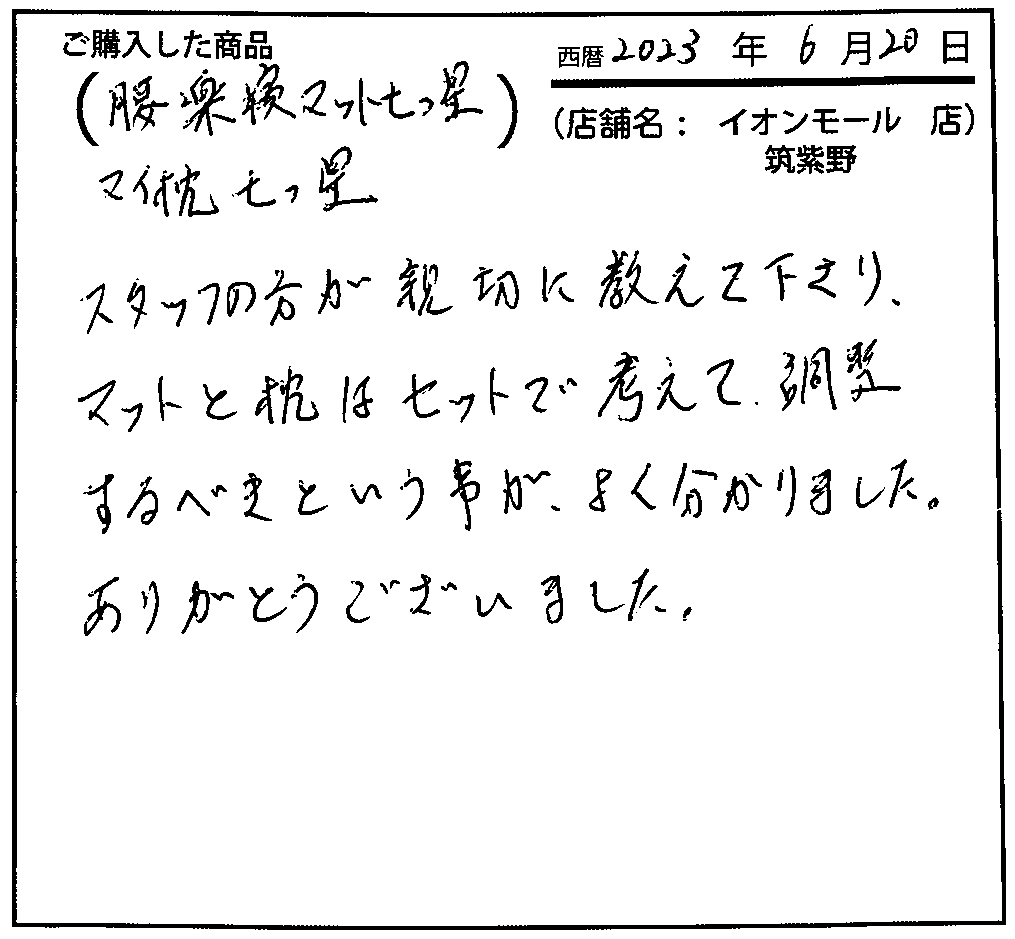 ご購入した商品
西暦2023年6月20日
(腰楽寝マットセっ星)
(店舗名: イオンモール 店)
筑紫野
マイ枕 七っ星
スタッフの方が親切に教えて下さり、
マットと枕はセットで考えて、調整
するべきという事が、よく分かりました。
ありがとうございました。